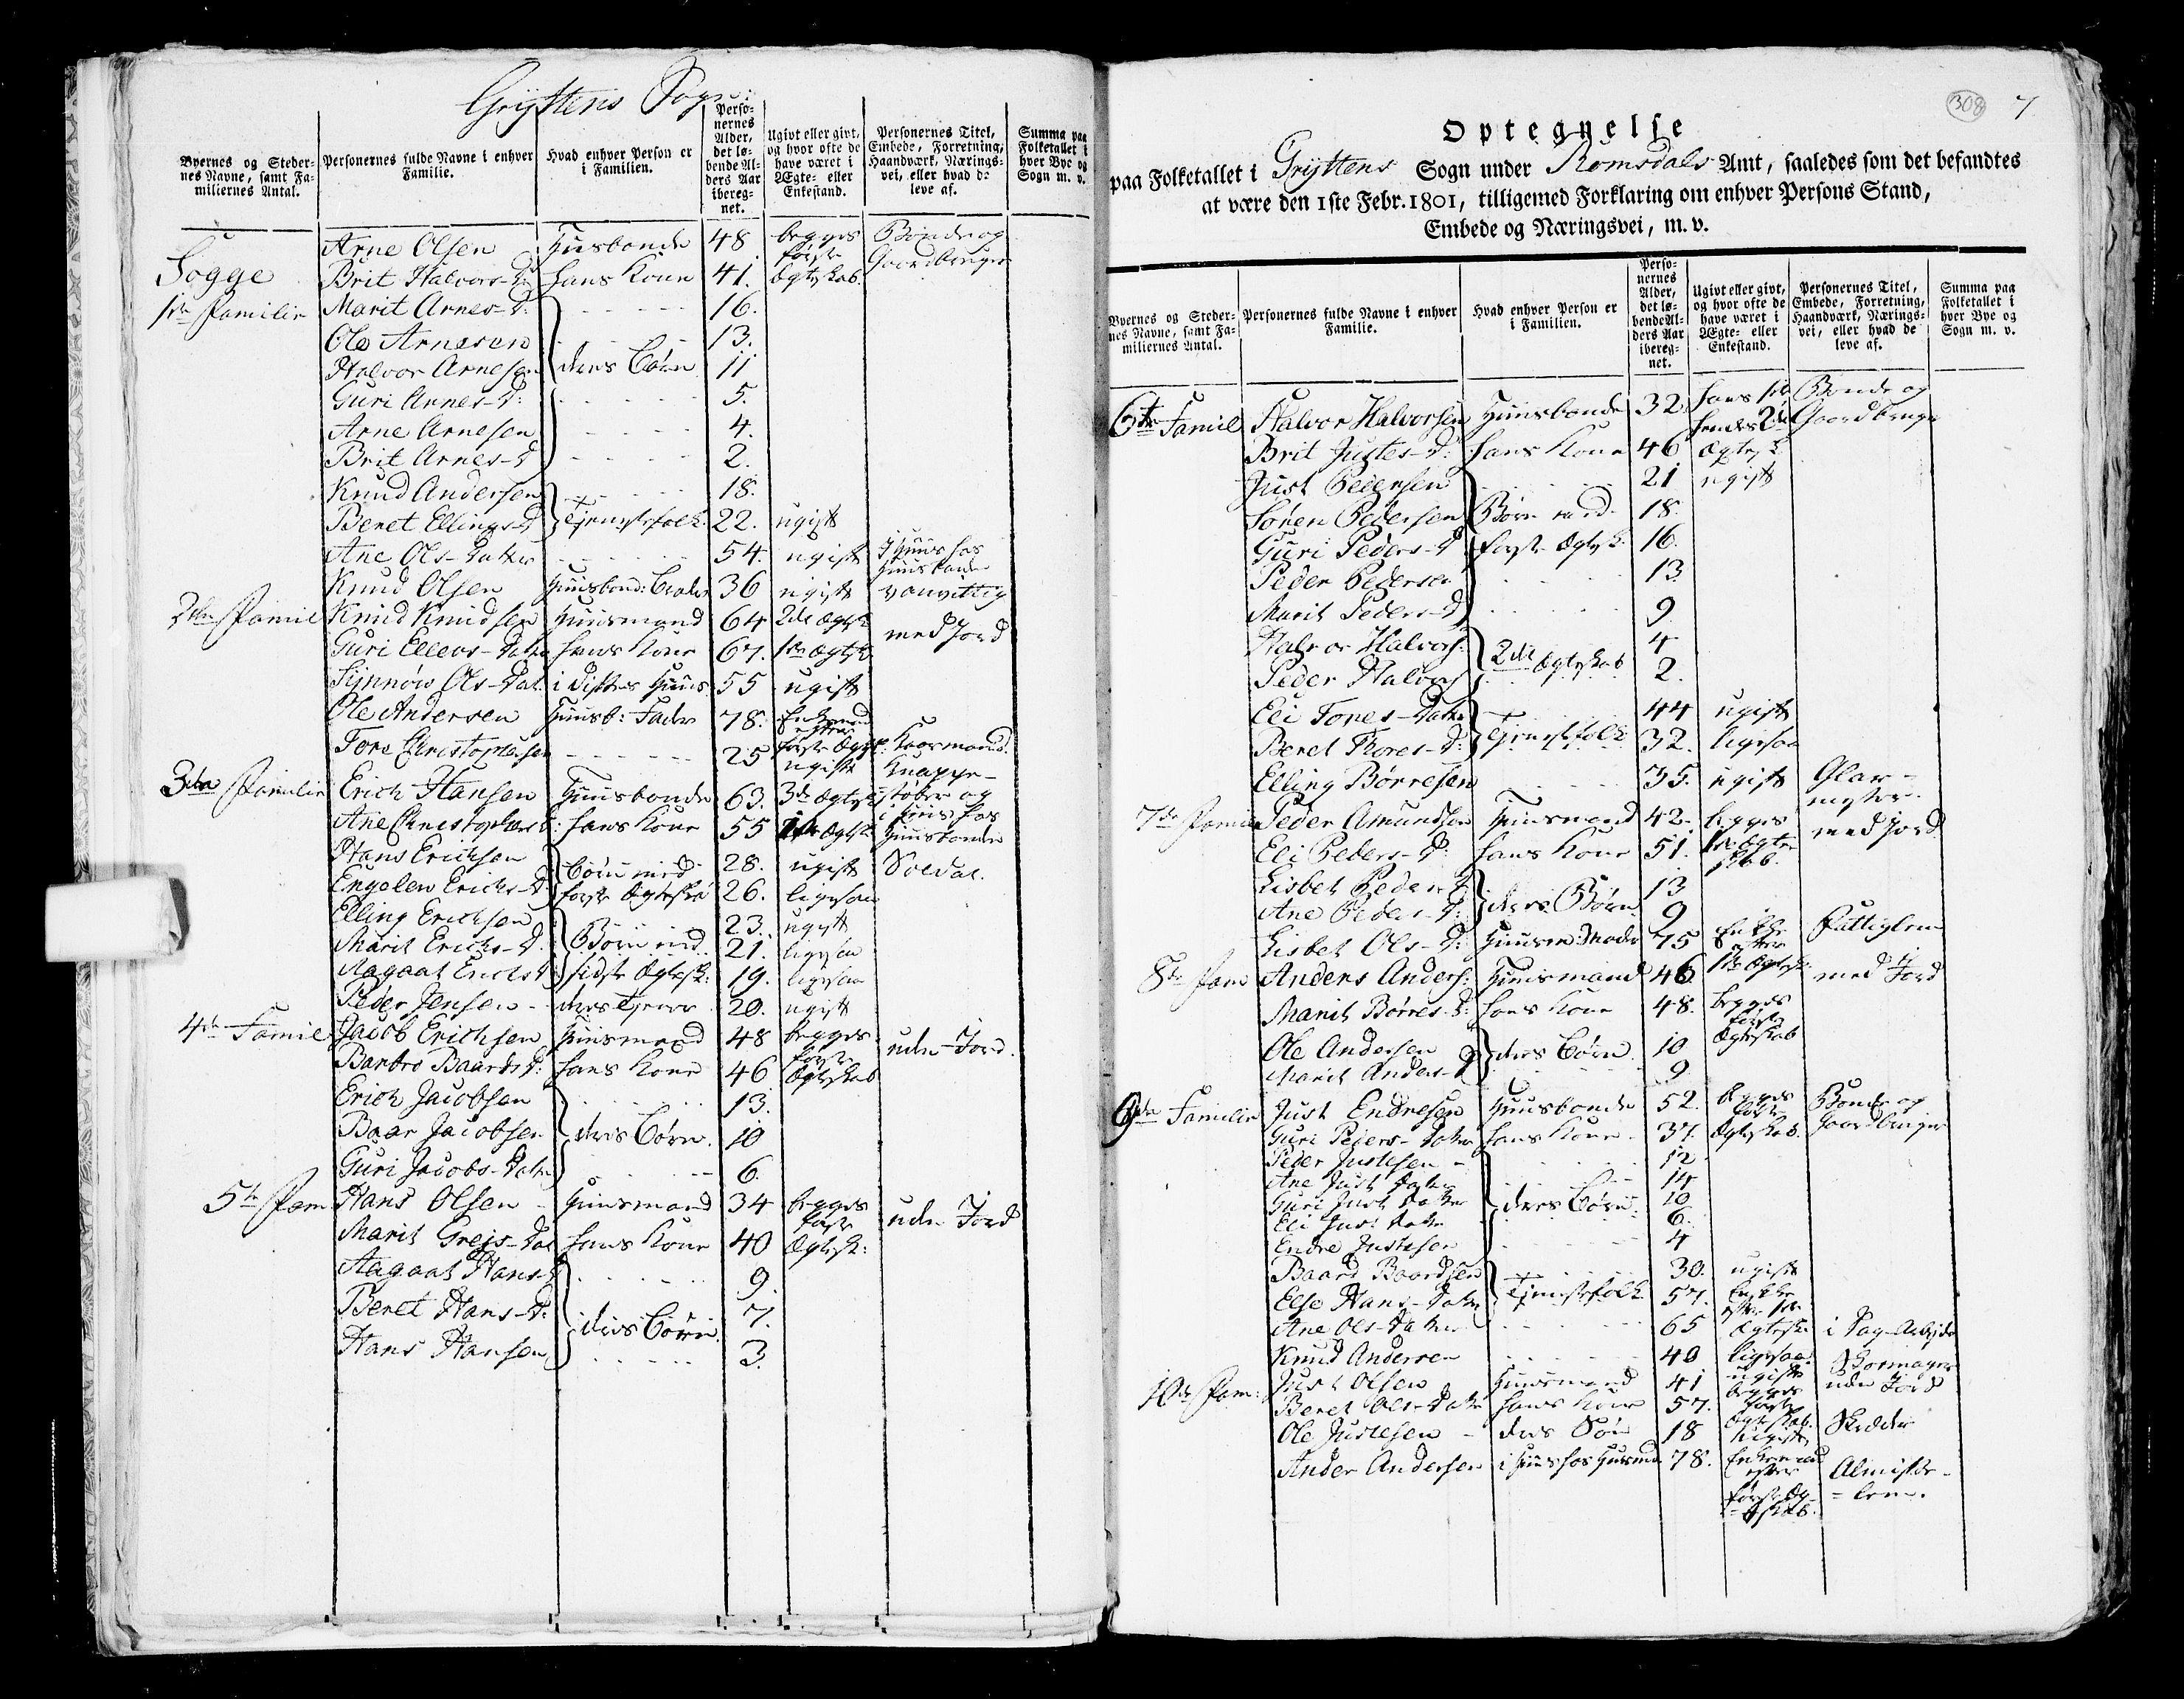 Gryttens Sogn
Byernes og Steder-
nes Navne, samt Fa-
miliernes Antal.
Personernes fulde Navne i enhver
Familie.
Hvad enhver Person er
i Familien.
Perso-
nernes
Alder,
det lø-
bende Al-
ders Aar
ibereg-
net.
Ugivt eller givt,
og hvor ofte de
have været i
Ægte- eller
Enkestand.
Personernes Titel,
Embede, Forretning,
Haandværk, Nærings-
vei, eller hvad de
leve af.
Summa paa
Folketallet i
hver Bye og
Sogn m. v.
Arne Olsen Huusbonde 48 begges første Bonde og
Sogge Brit Halvors-D: hans Kone 41. Ægteskab Gaardbruger
1ste Familie Marit Arnes-D: 16.
Ole Arnesen 13.
Halvor Arnesen deres Børn 11
Guri Arnes-D: 5.
Arne Arnesen 4.
Brit Arnes-D 2.
Knud Andersen 18.
Beret Ellings-D Tjenestefolk 22. ugift
Ane Ols-Datter 54. ugift i Huus hos Huusbonde
Knud Olsen Huusbond: Broder 36 ugift vanvittig
2den Famil Knud Knudsen Huusmand 64 2det Ægtsk med Jord
Guri Ellevs-Datter hans Kone 67. 1ste Ægtsk
Synnøw Ols-Dat. i Distes Huus 55 ugift
Ole Andersen Huusb: Fader 78. Enkemand efter første Ægtsk. Kaarmand.
Tore Christophersen 25 ugift Knappe-
3die Familie Erich Hansen Huusbonde 63. 3de Ægtesk støber og
Ane Christophers D: hans Kone 55 1ste Ægtsk. i Huus hos Huusbonden
Hans Erichsen Børn med 28. ugift Soldat.
Engelen Erichs-D: første Ægteskab 26. ligesaa
Elling Erichsen 23. ugift
Marit Erichs-D. Børn med 21. ligesaa
Aagaat Erichs D: sidste Ægtesk: 19. ligesaa
Peder Jensen - deres Tjener 20. ugift
4de Famil Jacob Erichsen Huusmand 48 begges første uden Jord.
Barbro Baards D: hans Kone 46 Ægteskab
Erich Jacobsen 13.
Baar Jacobsen deres Børn. 10
Guri Jacobs-Datter 6.
5te Fam Hans Olsen - Huusmand 34 begges første uden Jord
Marit Grejs-Dat hans Kone 40 Ægtesk:
Aagaat Hans-D 9.
Beret Hans-D: deres Børn. 7.
Hans Hansen 3.
308 7
Optegnelse
paa Folketallet i Gryttens Sogn under Romsdals Amt, saaledes som det befandtes
at være den 1ste Febr. 1801, tilligemed Forklaring om enhver Persons Stand,
Embede og Næringsvei, m. v.
Byernes og Steder-
nes Navne, samt Fa-
miliernes Antal.
Personernes fulde Navne i enhver
Familie.
Hvad enhver Person er
i Familien.
Perso-
nernes
Alder,
det lø-
bende Al-
ders Aar
ibereg-
net.
Ugivt eller givt,
og hvor ofte de
have været i
Ægte- eller
Enkestand.
Personernes Titel,
Embede, Forretning,
Haandværk, Nærings-
vei, eller hvad de
leve af.
Summa paa
Folketallet i
hver Bye og
Sogn m. v.
6te Famil Halvor Halvorsen Huusbonde 32. hans 1ste Bonde og
hendes 2det Gaardbruger
Brit Justes-D: hans Kone 46 Ægtesk
Just Pedersen 21 ugift
Søren Pedersen Børn med 18.
Guri Peders-D første Ægtesk: 16.
Peder Pedersen 13.
Marit Peders-D 9.
Halvor Halvors: 2det Ægteskab 4
Peder Halvors 2.
Eli Tores-Datter 44 ugift
Beret Thores-D: Tjenestfolk 32. ligesaa
Elling Børresen 35. ugift Glar-
mester.
7de Famil Peder Amundsen Huusmand 42. begges med Jord
Eli Peders-D: hans Kone 51. 1ste Ægte
skab.
Lisbet Peders D 13
Ane Peders-D: deres Børn. 9
Lisbet Ols-D: Huusm: Moder 75 Enkke efter Fattiglem
1ste Ægtesk.
8de Fam Anders Anders: Huusmand 46 begges med Jord
Marit Børres-D: hans Kone 48. første
Ole Andersen deres Børn. 10 Ægteskab
Marit Anders-D 9
9de Familie Just Endresen Huusbonde 52. begges første Bonde og
Guri Peders-Datter hans Kone. 37. Ægteskab. Gaardbruger
Peder Justesen - 12
Ane Just Datter 14
Guri Just Datter deres Børn: 10
Eli Just Datter 6.
Endre Justesen 4
Baard Baardsen 30. ugift
Else Hans-Datter Tjenestefolk 57. Enkke
efter 1ste
Ane Ols-Datter 65 Ægtesk. i Dag-Arbejde
Knud Andersen 40 ligesaa Skomager
ugift
10de Fam: Just Olsen Huusmand 41 begges uden Jord
Beret Ols-Datter hans Kone 57. første
Ægteskab.
Ole Justesen - deres Søn 18 ugift Skredder
Ander Andersen i Huus hos Huusmd 78. Enkemand
efter Almisse-
første Æg- = lem.
teskab.